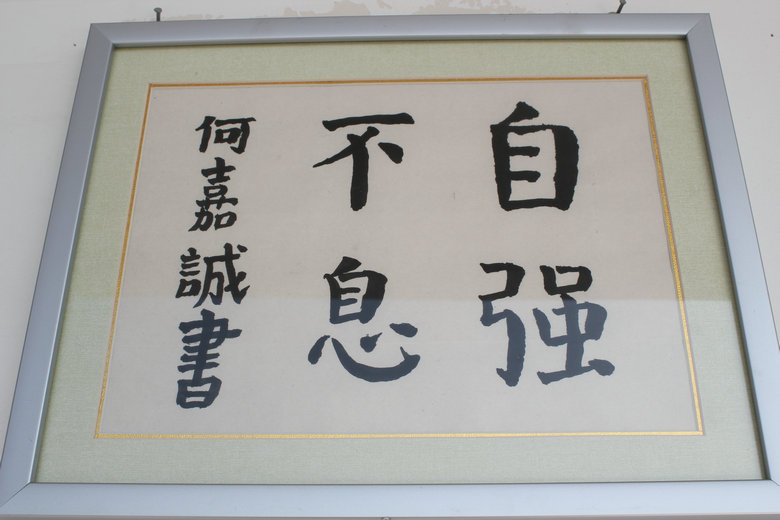 自强
不息
何嘉誠書